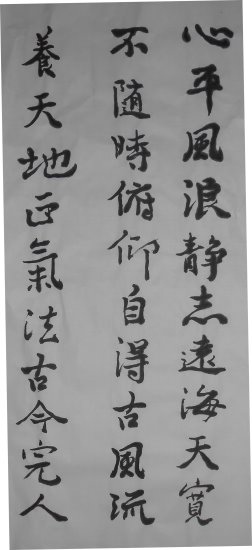 心平風浪静志遠海天寬
不隨時俯仰自得古風流
養天地正氣法古今完人